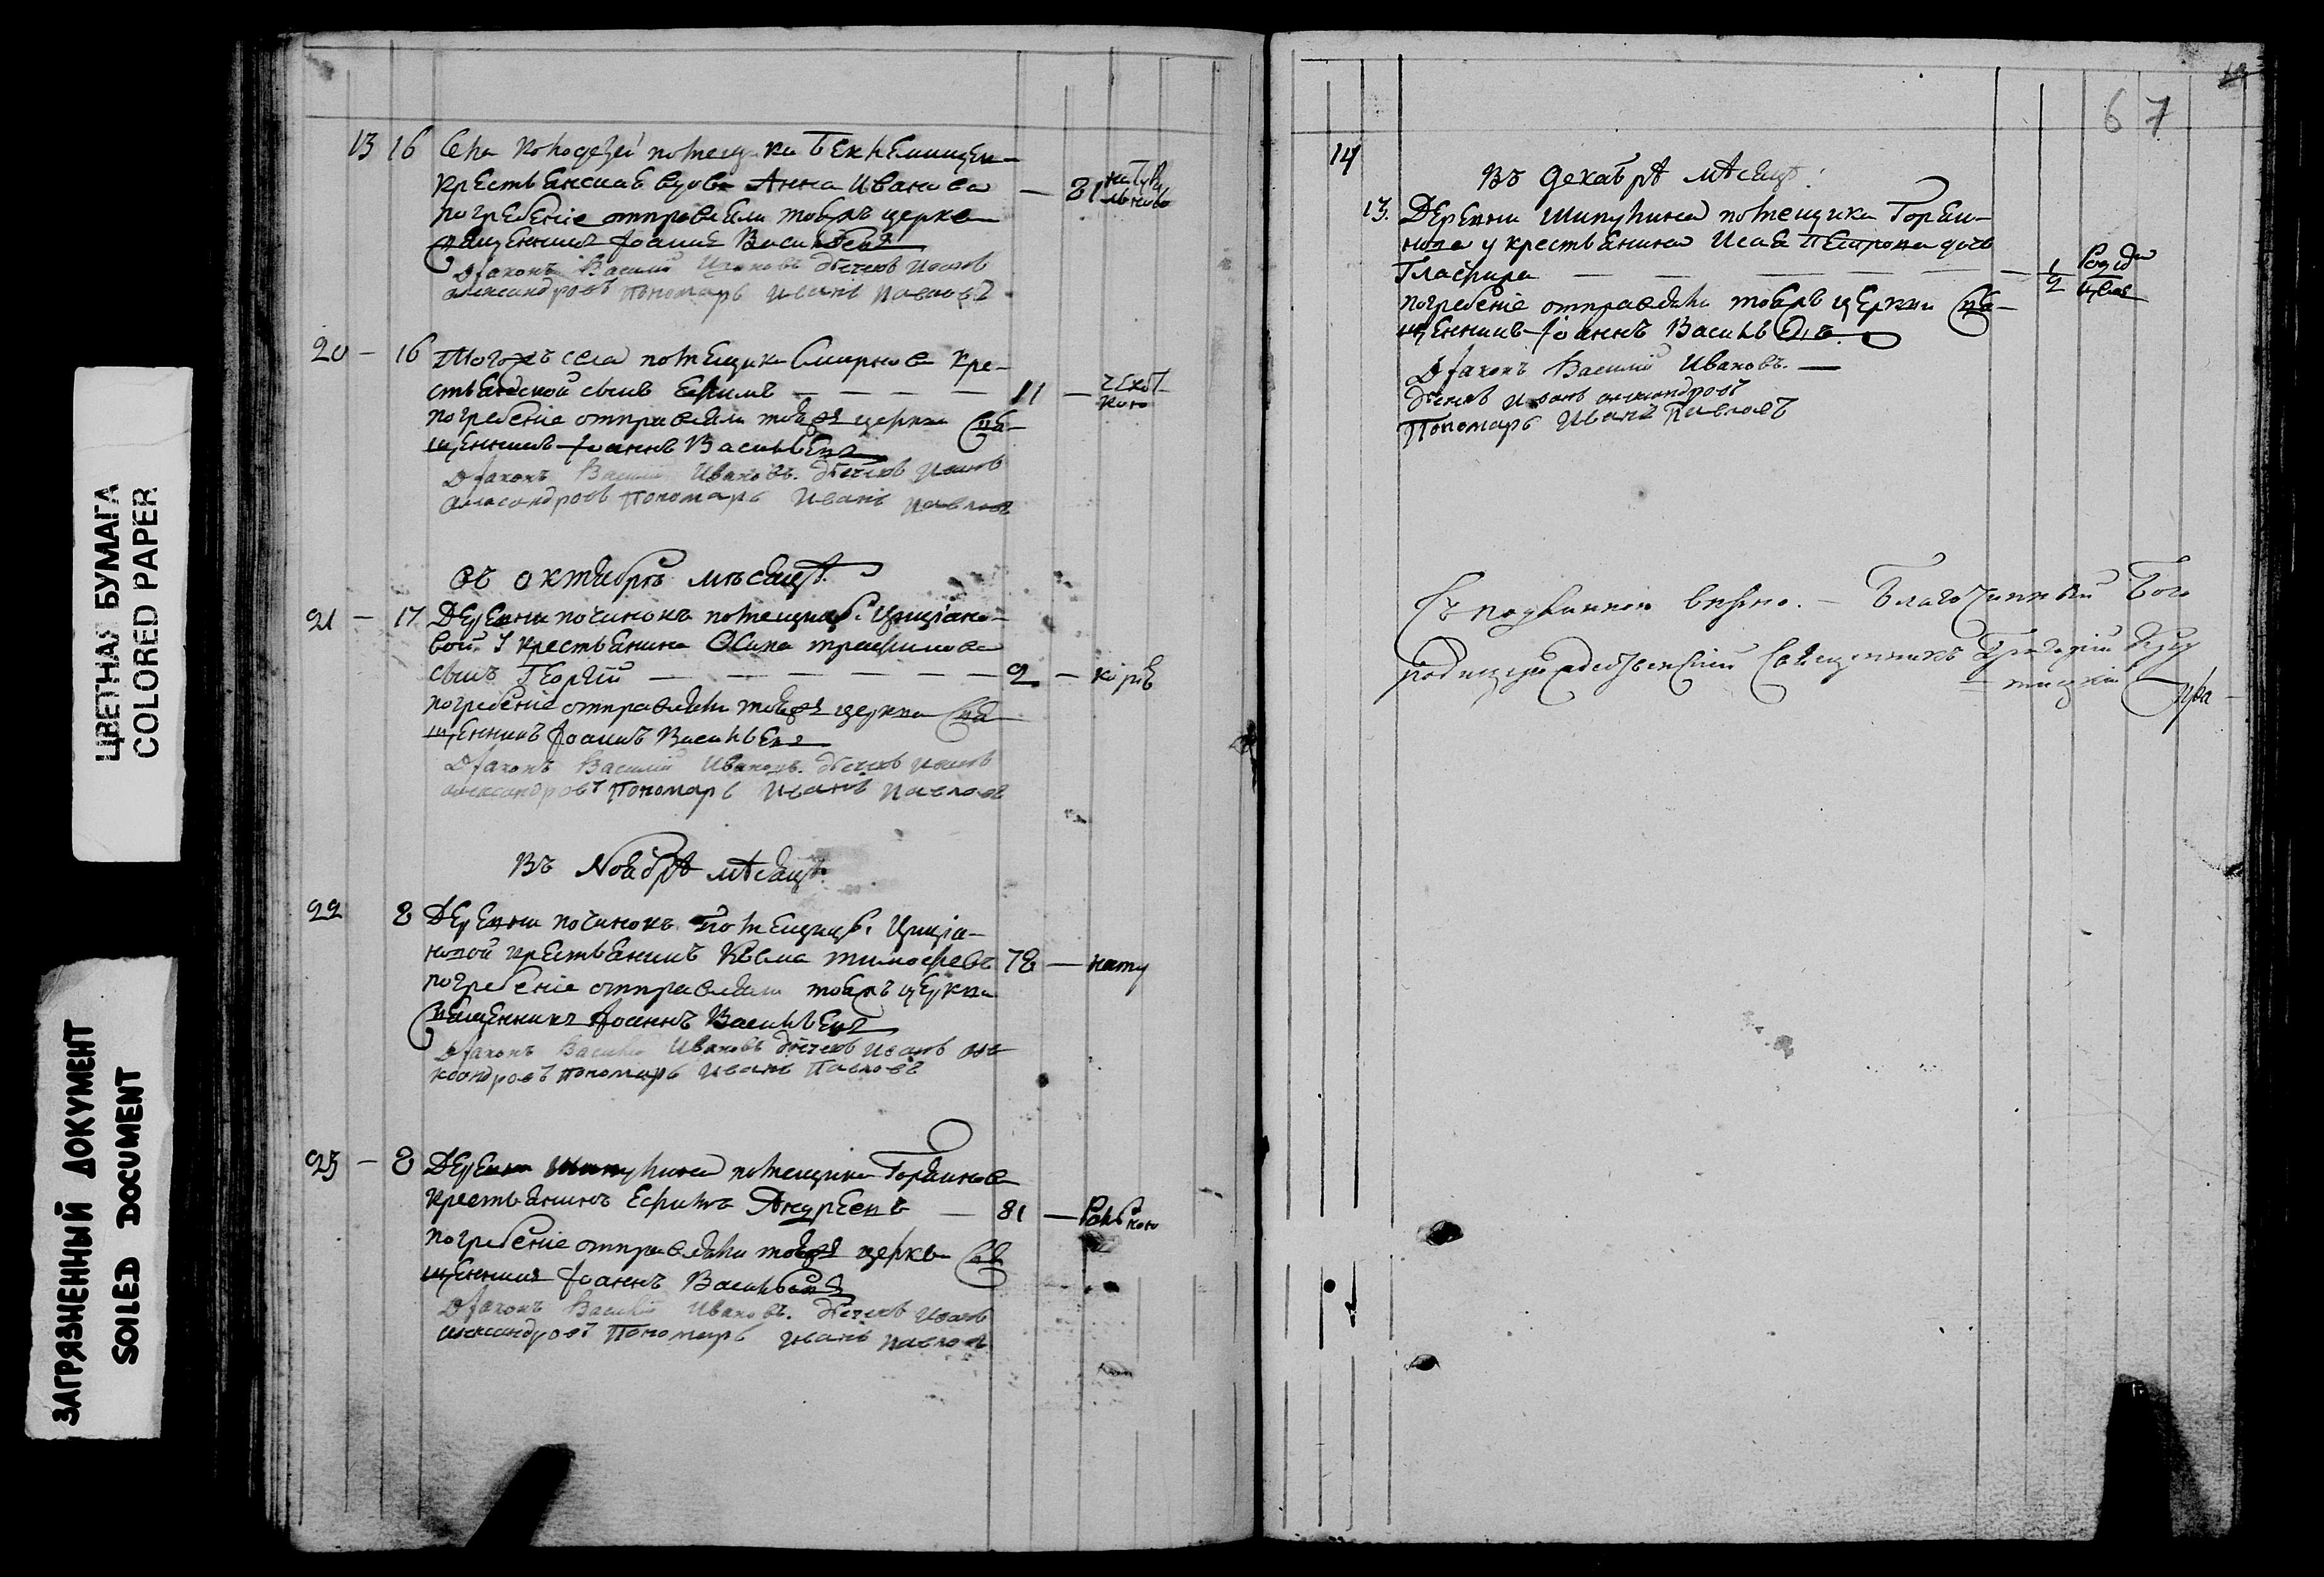 ЦВЕТНАЯ БУМАГА
COLORED PAPER
ЗАГРЯЗНЕННЫЙ ДОКУМЕНТ
SOILED DOCUMENT
13 16 Села Колодезей помещика Беклемише-
крестьянская вдова Анна Иванова — 81 натураль
погребение отправляли тоя церкви
священникъ Iоаннъ Васильевъ
Дiаконъ Василий Ивановъ дьячекъ Иванъ
александровъ Пономарь Иванъ Павловъ
20 — 16 Тогожъ села помещика Смирнова кре-
стьянской сынъ Ефимъ — — — — 11 — чехот
кою
погребение отправляли тояжъ церкви Свя-
щенникъ Iоаннъ Васильевъ
Дiаконъ Василий Ивановъ. дьячекъ Иванъ
александровъ Пономарь Иванъ Павловъ
Въ октябрѣ мѣсяцѣ.
21 — 17 Деревни починокъ помещицы Цицiано-
вой. У крестьянина Осипа трафимова
сынъ Георгiй — — — — — — 2 — корью
погребение отправляли тояжъ церкви Свя-
щенникъ Iоаннъ Васильевъ
Дiаконъ Василий Ивановъ. дьячекъ Иванъ
александровъ Пономарь Иванъ Павловъ
Въ Ноябрѣ мѣсяцѣ.
22 8 Деревни починокъ помещицы Цицiа-
новой крестьянинъ Косма тимофеевъ 78 — нату
погребение отправляли тояжъ церкви
священникъ Iоаннъ Васильевъ
Дiаконъ Василий Ивановъ дьячекъ Иванъ але
ксандровъ пономарь Иванъ Павловъ
23 — 8 Деревни Шипулина помещика Горяинова
крестьянинъ Ефимъ Андреевъ — 81 —
погребение отправляли тояжъ церкви Свя
щенникъ Iоаннъ Васильевъ
Дiаконъ Василий Ивановъ. дьячекъ Иванъ
александровъ Пономарь Иванъ Павловъ
67
14
Въ Декабрѣ мѣсяцѣ.
13. Деревни Шипулина помещика Горяи-
нова у крестьянина Исая Петрова дочь
Глафира — — — — — 1/2 Родим
цемъ
погребение отправляли тояжъ церкви Свя-
щенникъ Iоаннъ Васильевъ.
Дiаконъ Василий Ивановъ. —
дьячекъ Иванъ александровъ
Пономарь Иванъ Павловъ
Съ подлинною вѣрно. — Благочинный Бого
родицерождественскiй Священникъ